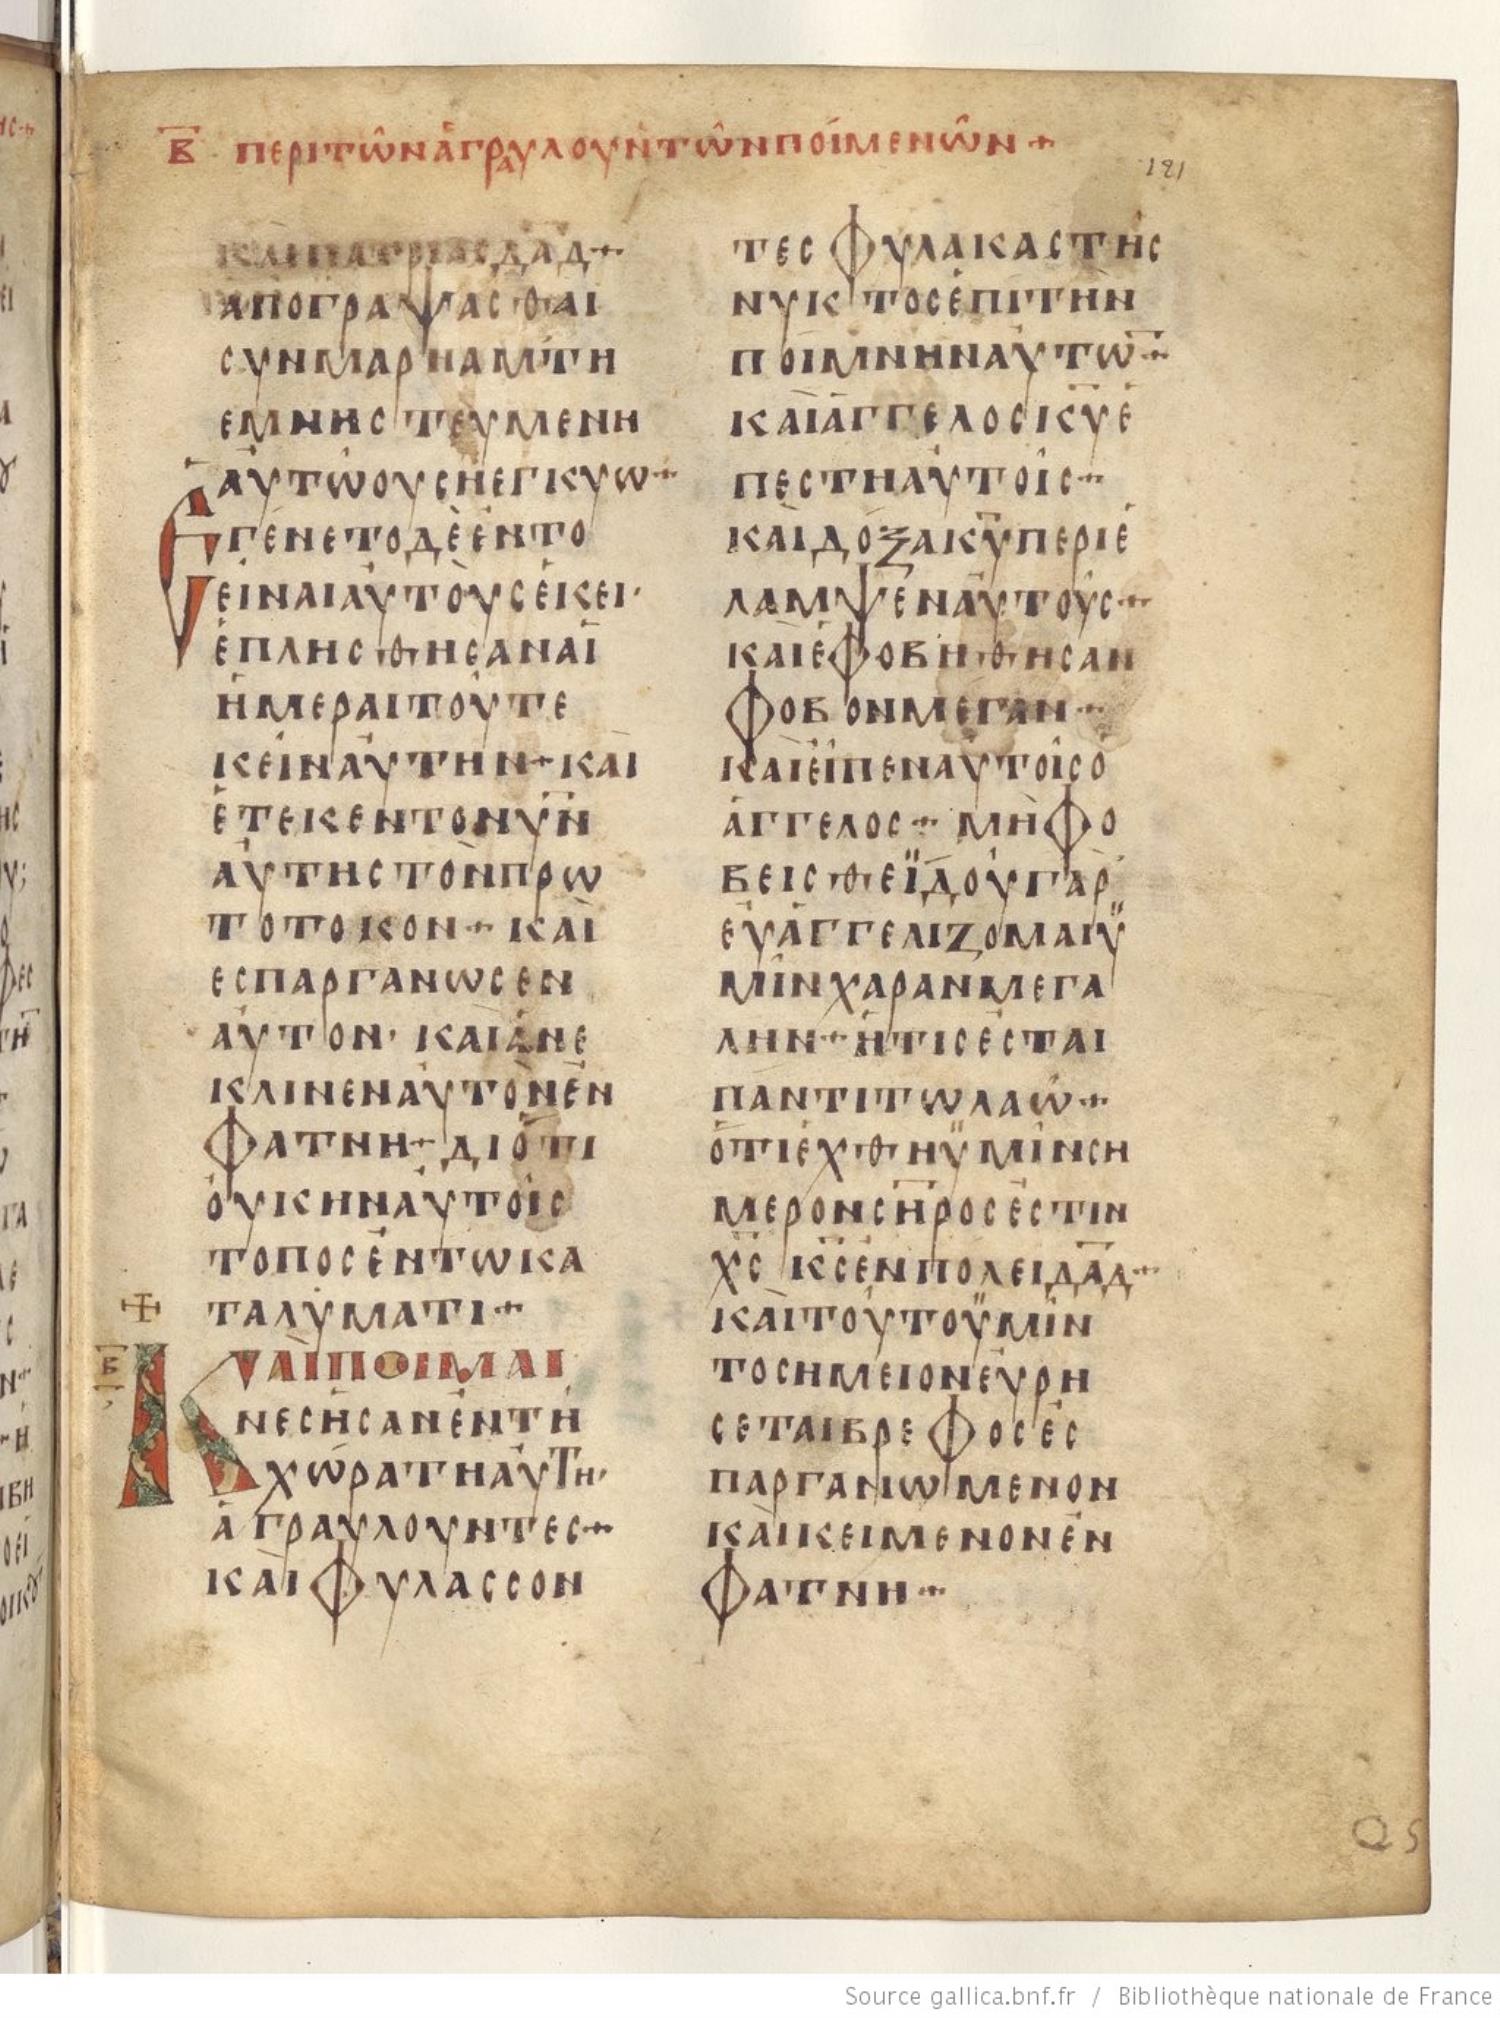 Β ΠΕΡΙΤΩ͂ΝἈΓΡΑΥΛΟΥΝΤΩ͂ΝΠΟΙΜΈΝΩΝ+
121
ΚΑΙΠΑΤΡΙΑΣΔΑΔ+
ΑΠΟΓΡΑΨΑΣΘΑΙ
ΣΥΝΜΑΡΗΑΜΤΗ
ΕΜΝΗΣΤΕΥΜΕΝΗ
ΑΥΤΩΟΥΣΗΕΓΚΥΩ+
ΕΓΕΝΕΤΟΔΕΕΝΤΟ
ΕΙΝΑΙΑΥΤΟΥΣΕΚΕΙ·
ΕΠΛΗΣΘΗΣΑΝΑΙ
ΗΜΕΡΑΙΤΟΥΤΕ
ΚΕΙΝΑΥΤΗΝ+ΚΑΙ
ΕΤΕΚΕΝΤΟΝΥΝ
ΑΥΤΗΣΤΟΝΠΡΩ
ΤΟΤΟΚΟΝ+ΚΑΙ
ΕΣΠΑΡΓΑΝΩΣΕΝ
ΑΥΤΟΝ·ΚΑΙΑΝΕ
ΚΛΙΝΕΝΑΥΤΟΝΕΝ
ΦΑΤΝΗ+ΔΙΟΤΙ
ΟΥΚΗΝΑΥΤΟΙΣ
ΤΟΠΟΣΕΝΤΩΚΑ
ΤΑΛΥΜΑΤΙ+
Β ΚΑΙΠΟΙΜΑΙ
ΝΕΣΗΣΑΝΕΝΤΗ
ΧΩΡΑΤΗΑΥΤΗ·
ΑΓΡΑΥΛΟΥΝΤΕΣ+
ΚΑΙΦΥΛΑΣΣΟΝ
ΤΕΣΦΥΛΑΚΑΣΤΗΣ
ΝΥΚΤΟΣΕΠΙΤΗΝ
ΠΟΙΜΝΗΝΑΥΤΩ+
ΚΑΙΑΓΓΕΛΟΣΚΥΕ
ΠΕΣΤΗΑΥΤΟΙΣ+
ΚΑΙΔΟΞΑΚΥΠΕΡΙΕ
ΛΑΜΨΕΝΑΥΤΟΥΣ+
ΚΑΙΕΦΟΒΗΘΗΣΑΝ
ΦΟΒΟΝΜΕΓΑΝ+
ΚΑΙΕΙΠΕΝΑΥΤΟΙΣΟ
ΑΓΓΕΛΟΣ+ΜΗΦΟ
ΒΕΙΣΘΕΪΔΟΥΓΑΡ
ΕΥΑΓΓΕΛΙΖΟΜΑΙΫ
ΜΙΝΧΑΡΑΝΜΕΓΑ
ΛΗΝ+ΗΤΙΣΕΣΤΑΙ
ΠΑΝΤΙΤΩΛΑΩ+
ΟΤΙΕΧΘΗΫΜΙΝΣΗ
ΜΕΡΟΝΣΗΡΟΣΕΣΤΙΝ
ΧΣΚΣΕΝΠΟΛΕΙΔΑΔ+
ΚΑΙΤΟΥΤΟΫΜΙΝ
ΤΟΣΗΜΕΙΟΝΕΥΡΗ
ΣΕΤΑΙΒΡΕΦΟΣΕΣ
ΠΑΡΓΑΝΩΜΕΝΟΝ
ΚΑΙΚΕΙΜΕΝΟΝΕΝ
ΦΑΤΝΗ+
Source gallica.bnf.fr / Bibliothèque nationale de France